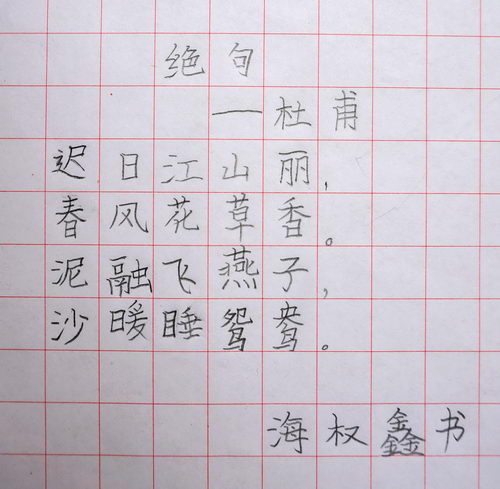 绝句
—杜甫
迟日江山丽,
春风花草香。
泥融飞燕子,
沙暖睡鸳鸯。
海权鑫书